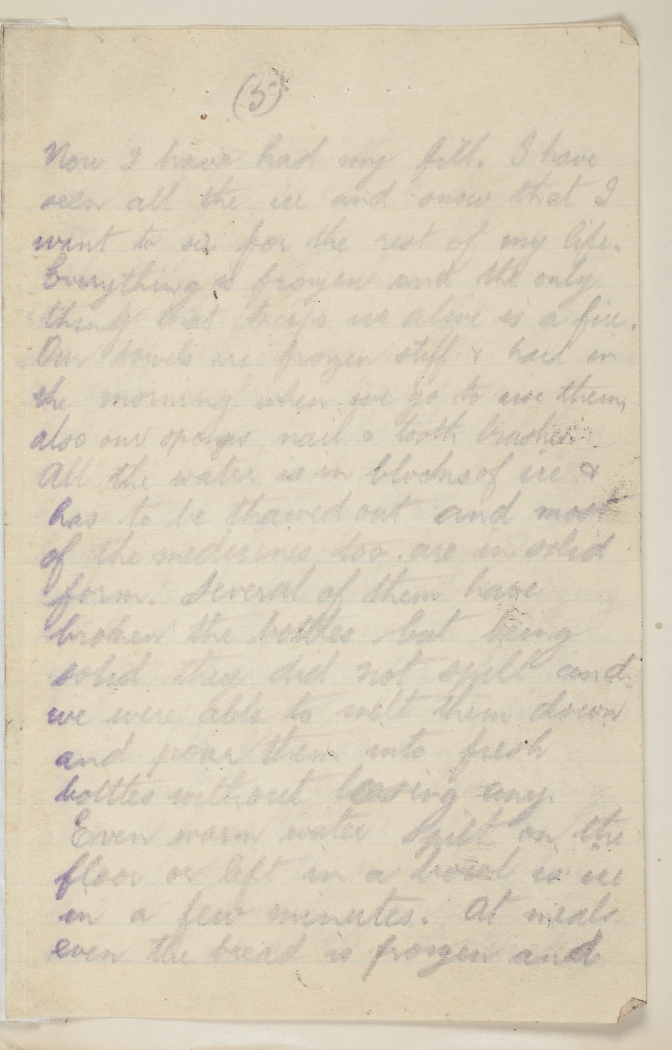 (5)
Now I have had my fill. I have
seen all the ice and snow that I
want to see for the rest of my life.
Everything is frozen and the only
thing that keeps us alive is a fire.
Our towels are frozen stiff & hard in
the morning when we go to use them,
also our sponges, nail & tooth brushes.
All the water is in blocks of ice &
has to be thawed out and most
of the medicines too are in solid
form. Several of them have
broken the bottles but being
solid they did not spill and
we were able to melt them down
and pour them into fresh
bottles without loosing any.
Even warm water spilt on the
floor or left in a bowl is ice
in a few minutes. At meals
even the bread is frozen and